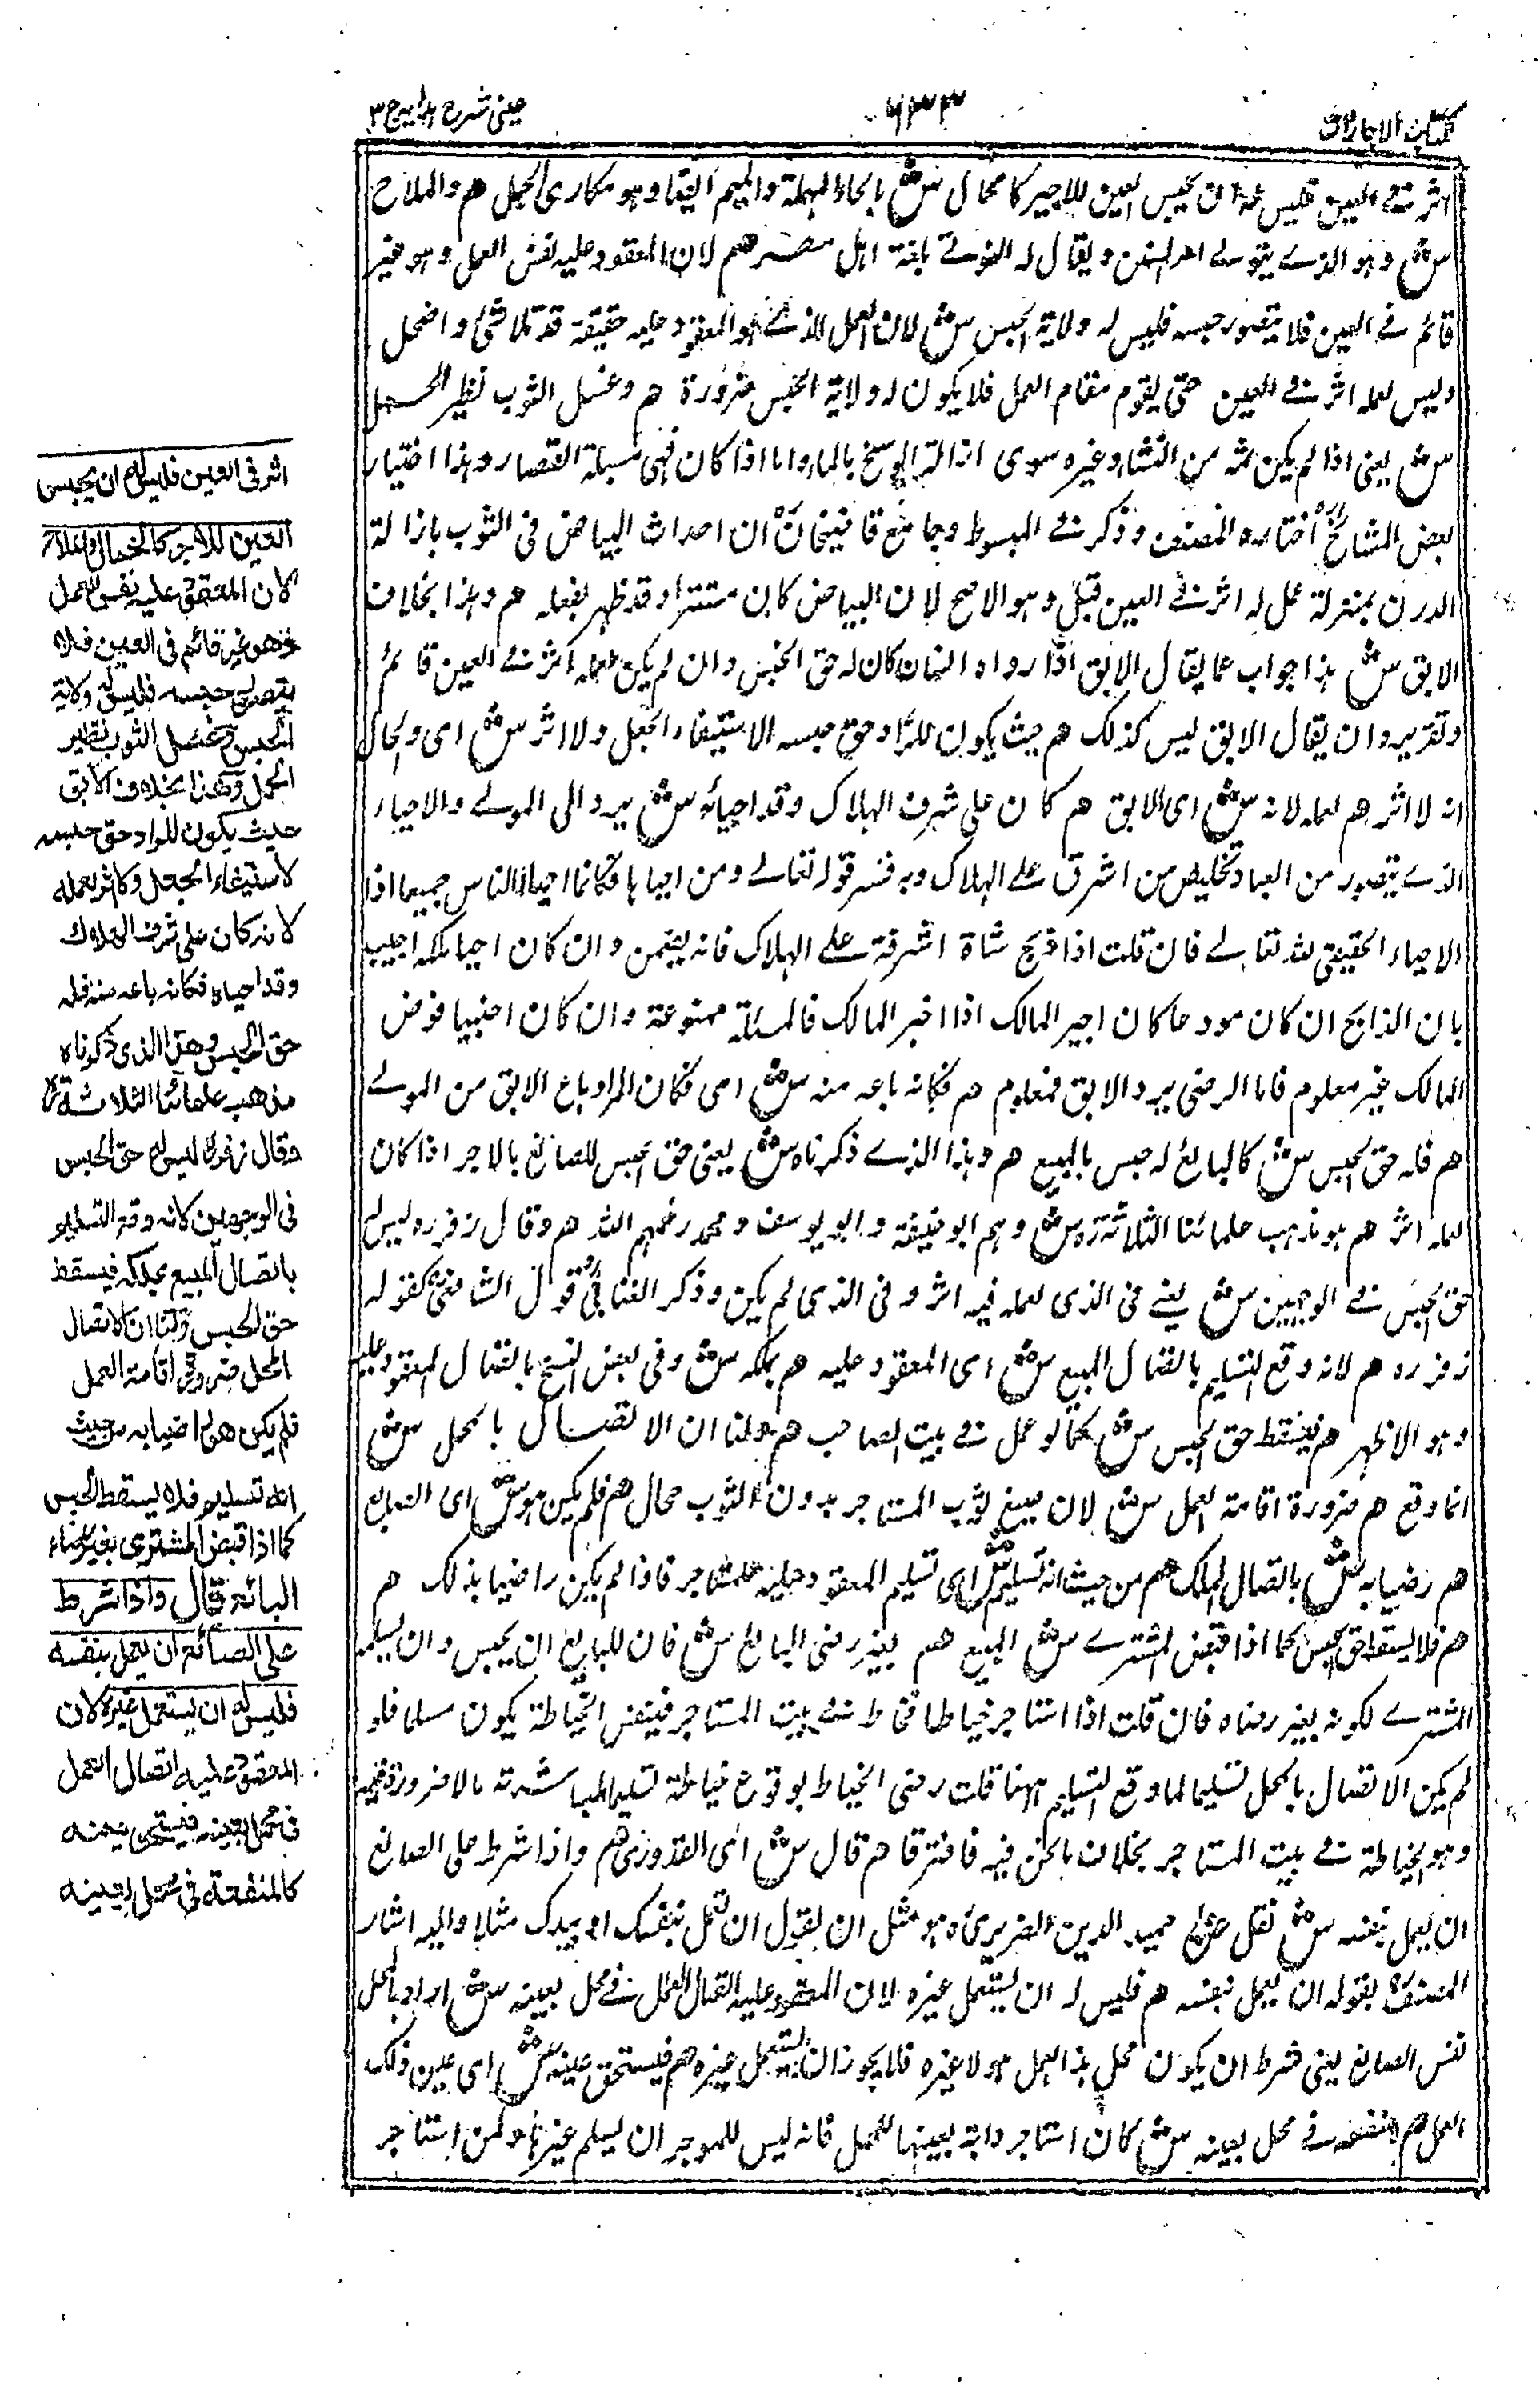 كتاب الاجارات
٦٣٣
عينى شرح الهدايه ج ٣
اثر فے العين فليس له ان يحبس العين للاجر كالحمال ش بالحاء المهملة والميم ايضا وهو مكارى الجمل هم والملاح
ش وهو الذے يتولے امر السفن ويقال له النوتے بلغة اهل مصر هم لان المعقود عليه نفس العمل وهو غير
قائم فے العين فلا يتصور حبسه فليس له ولاية الحبس ش لان العمل الذے هو المعقود عليه حقيقة قد تلاشى واضمحل
وليس لعمله اثر فے العين حتى يقوم مقام العمل فلا يكون له ولاية الحبس ضرورة هم وغسل الثوب نظير الحمل
ش يعنى اذا لم يكن ثمه من النشاء وغيره سوى ازالة الوسخ بالماء واما اذا كان فهى مسئلة القصار وهذا اختيار
بعض المشائخ اختاره المصنف وذكر فے المبسوط وجامع قاضيخان ان احداث البياض فى الثوب بازالة
الدرن بمنزلة عمل له اثر فے العين قيل وهو الاصح لان البياض كان مستترا وقد ظهر بفعله هم وهذا بخلاف
الابق ش هذا جواب عما يقال الابق اذا رده انسان كان له حق الحبس وان لم يكن لعمله اثر فے العين قائم
وتقريره ان يقال الابق ليس كذلك هم حيث يكون للراد حق حبسه لاستيفاء الجعل ولا اثر ش اى والحال
انه لا اثر هم لعمله لانه ش اى الابق هم كان على شرف الهلاك وقد احياه ش برده الى المولے والاحياء
الذے يتصور من العباد تخليص من اشرف علے الهلاك وبه فسر قوله تعالے ومن احياها فكانما احيا الناس جميعا اذا
الاحياء الحقيقى لله تعالے فان قلت اذا ذبح شاة اشرفت علے الهلاك فانه يضمن وان كان احيا ملكه اجيب
بان الذابح ان كان مودعا كان اجير المالك اذا اخبر المالك فالمسئلة ممنوعة وان كان اجنبيا فرضى
المالك غير معلوم فاما الرضى برد الابق فمعلوم هم فكانه باعه منه ش اى فكان الراد باع الابق من المولے
هم فله حق الحبس ش كالبائع له حبس بالمبيع هم وهذا الذے ذكرناه ش يعنى حق الحبس للصانع بالاجر اذا كان
لعمله اثر هم هو مذهب علمائنا الثلاثة ره ش وهم ابو حنيفة وابو يوسف ومحمد رحمهم الله هم وقال زفر ره ليس له
حق الحبس فے الوجهين ش يعنے فى الذى لعمله فيه اثر وفى الذى لم يكن وذكر العتابى قول الشافعى كقوله
زفر ره هم لانه وقع التسليم باتصال المبيع ش اى المعقود عليه هم بملكه ش وفى بعض النسخ باتصال المعقود عليه
وهو الاظهر هم فيسقط حق الحبس ش كما لو عمل فے بيت الصاحب هم ولنا ان الاتصال بالمحل ش
انما وقع هم ضرورة اقامة العمل ش لان صبغ ثوب المستاجر بدون الثوب محال هم فلم يكن هو ش اى الصانع
هم رضيا به ش باتصال الملك هم من حيث انه تسليم ش اى تسليم المعقود عليه للمستاجر فاذا لم يكن راضيا بذلك هم
هم فلا يسقط حق الحبس كما اذا قبض المشترے ش المبيع هم بغير رضى البائع ش فان للبائع ان يحبس وان يسلمه
المشترے لكونه بغير رضاه فان قلت اذا استاجر خياطا فخاط فے بيت المستاجر فبنفس الخياطة يكون مسلما فلو
لم يكن الاتصال بالمحل تسليما لما وقع التسليم ههنا قلت رضى الخياط بوقوع خياطة تسليما لمباشرته مالا ضرورة فيه
وهو الخياطة فے بيت المستاجر بخلاف مانحن فيه فافترقا هم قال ش اى القدورى هم واذا شرط على الصانع
ان يعمل بنفسه ش نقل عن حميد الدين الضريرى ره هو مثل ان يقول ان تعمل بنفسك او بيدك مثلا واليه اشار
المصنف بقوله ان يعمل بنفسه هم فليس له ان يستعمل غيره لان المعقود عليه اتصال العمل فے محل بعينه ش اراد بالمحل
نفس الصانع يعنى شرط ان يكون محل هذا العمل هو لا غيره فلا يجوز ان يستعمل غيره هم فيستحق عينه ش اى عين ذلك
العمل هم كالمنفعة فے محل بعينه ش كان استاجر دابة بعينها للحمل فانه ليس للموجر ان يسلم غيرها وكمن استاجر
اثر فى العين فليس له ان يحبس
العين للاجر كالحمال والملاح
لان المعقود عليه نفس العمل
وهو غير قائم فى العين فلا
يتصور حبسه فليس له ولاية
الحبس وغسل الثوب نظير
الحمل وهذا بخلاف الابق
حيث يكون للراد حق حبسه
لاستيفاء الجعل ولا اثر لعمله
لانه كان على شرف الهلاك
وقد احياه فكانه باعه منه فله
حق الحبس وهذا الذى ذكرناه
مذهب علمائنا الثلاثة ره
وقال زفر ره ليس له حق الحبس
فى الوجهين لانه وقع التسليم
باتصال المبيع بملكه فيسقط
حق الحبس ولنا ان الاتصال
بالمحل ضرورة اقامة العمل
فلم يكن هو راضيا به من حيث
انه تسليم فلا يسقط الحبس
كما اذا قبض المشترى بغير رضاء
البائع قال واذا شرط
على الصانع ان يعمل بنفسه
فليس له ان يستعمل غيره لان
المعقود عليه اتصال العمل
فى محل بعينه فيستحق عينه
كالمنفعة فى محل بعينه